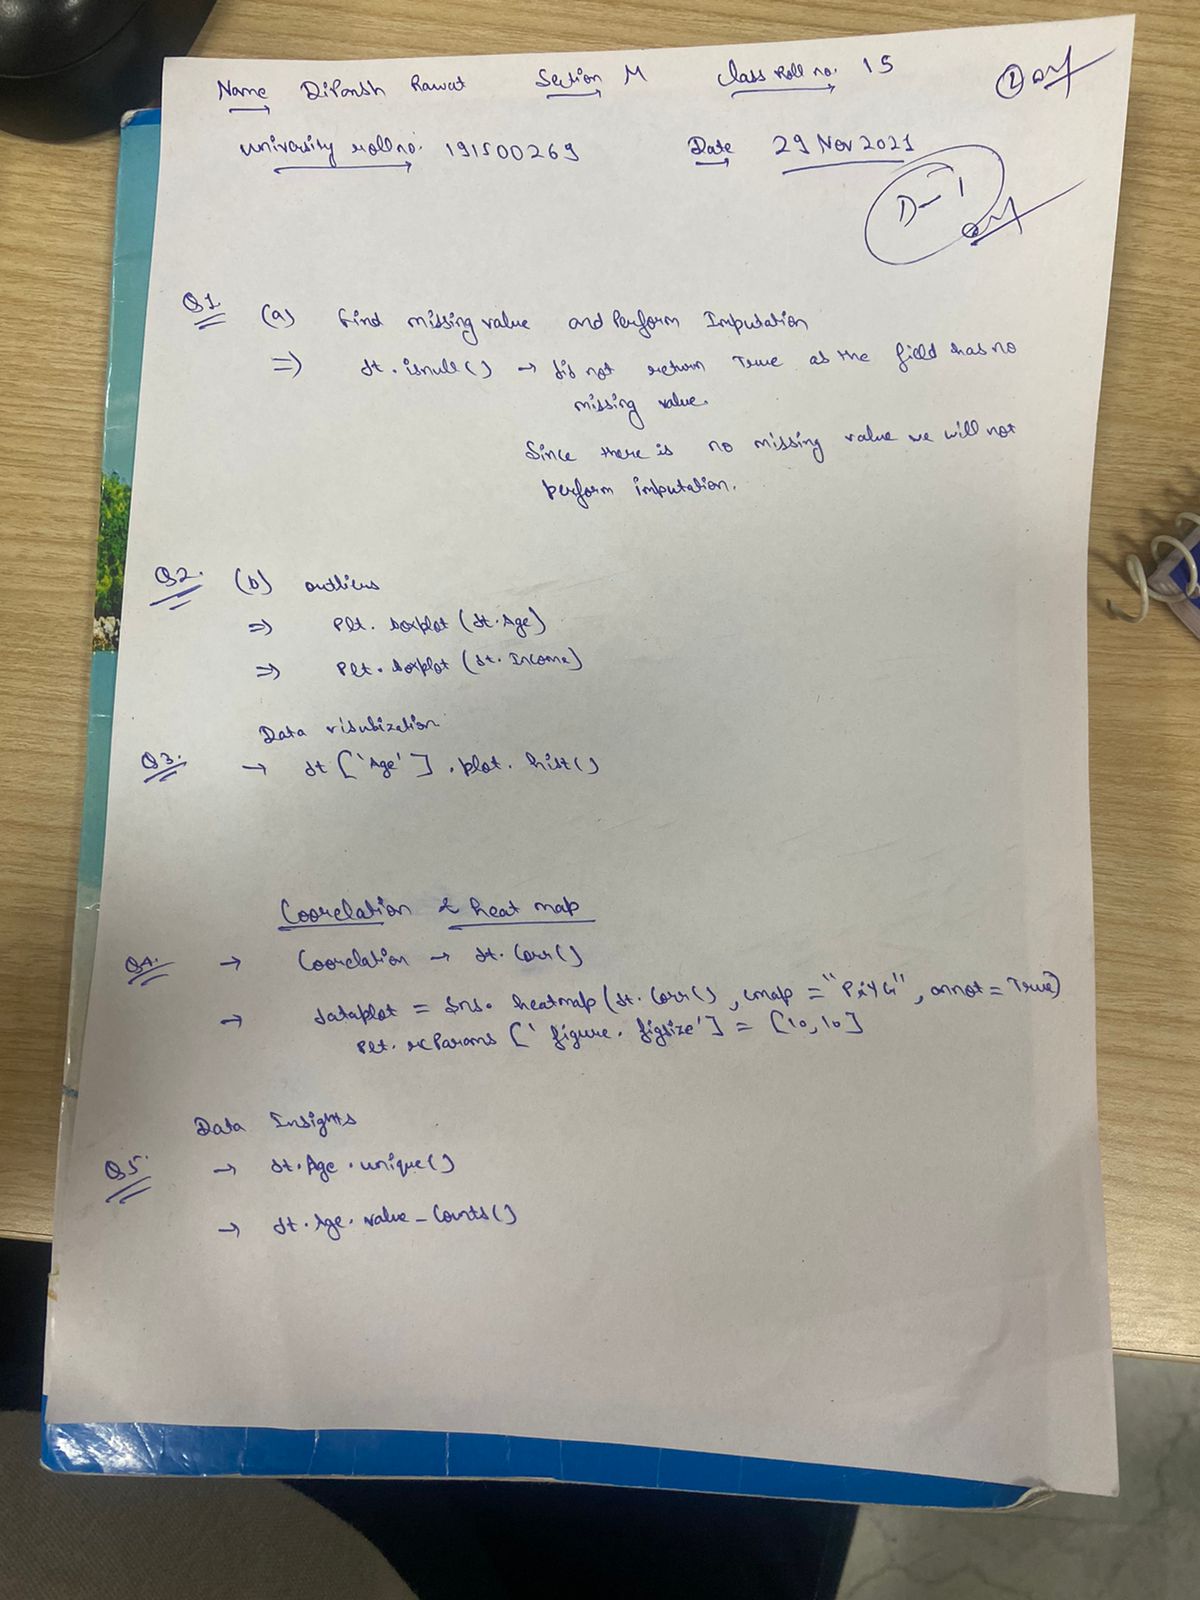 Name Dipansh Rawat Section M Class Roll no. 15
University Roll no. 191500269 Date 29 Nov 2021
D-1
Q1. (a) Find missing value and Perform Imputation
=> dt.isnull() → did not return True as the field has no
missing value.
Since there is no missing value we will not
perform imputation.
Q2. (b) outliers
=> Plt. boxplot (dt.Age)
=> Plt. boxplot (dt. Income)
Data visulization
Q3. → dt ['Age'] .plot. hist()
Coorelation & heat map
Q4. → Coorelation → dt. Corr()
→ dataplot = Sns. heatmap (dt. Corr(), cmap = "PiYG", annot = True)
Plt. rcParams ['figure. figsize'] = [10, 10]
Data Insights
Q5. → dt.Age.unique()
→ dt.Age.value_Counts()